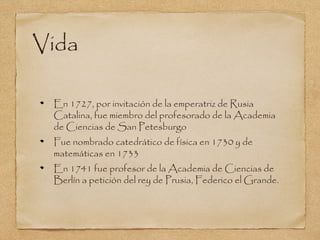 Vida
En 1727, por invitación de la emperatriz de Rusia
Catalina, fue miembro del profesorado de la Academia
de Ciencias de San Petesburgo
Fue nombrado catedrático de física en 1730 y de
matemáticas en 1733
En 1741 fue profesor de la Academia de Ciencias de
Berlín a petición del rey de Prusia, Federico el Grande.